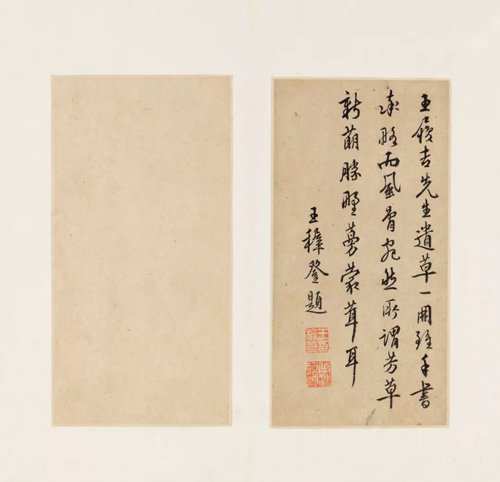 王履吉先生遺草一開雖手書
率略而風骨宛然所謂芳草
新萌勝野蔓蒙茸耳
王穉登題